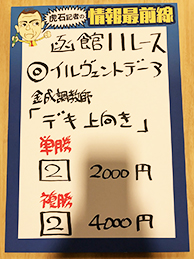 虎石記者の
情報最前線
函館11レース
◎イルヴェントデーア
金成調教師
「デキ上向き」
単勝
2 2000円
複勝
2 4000円